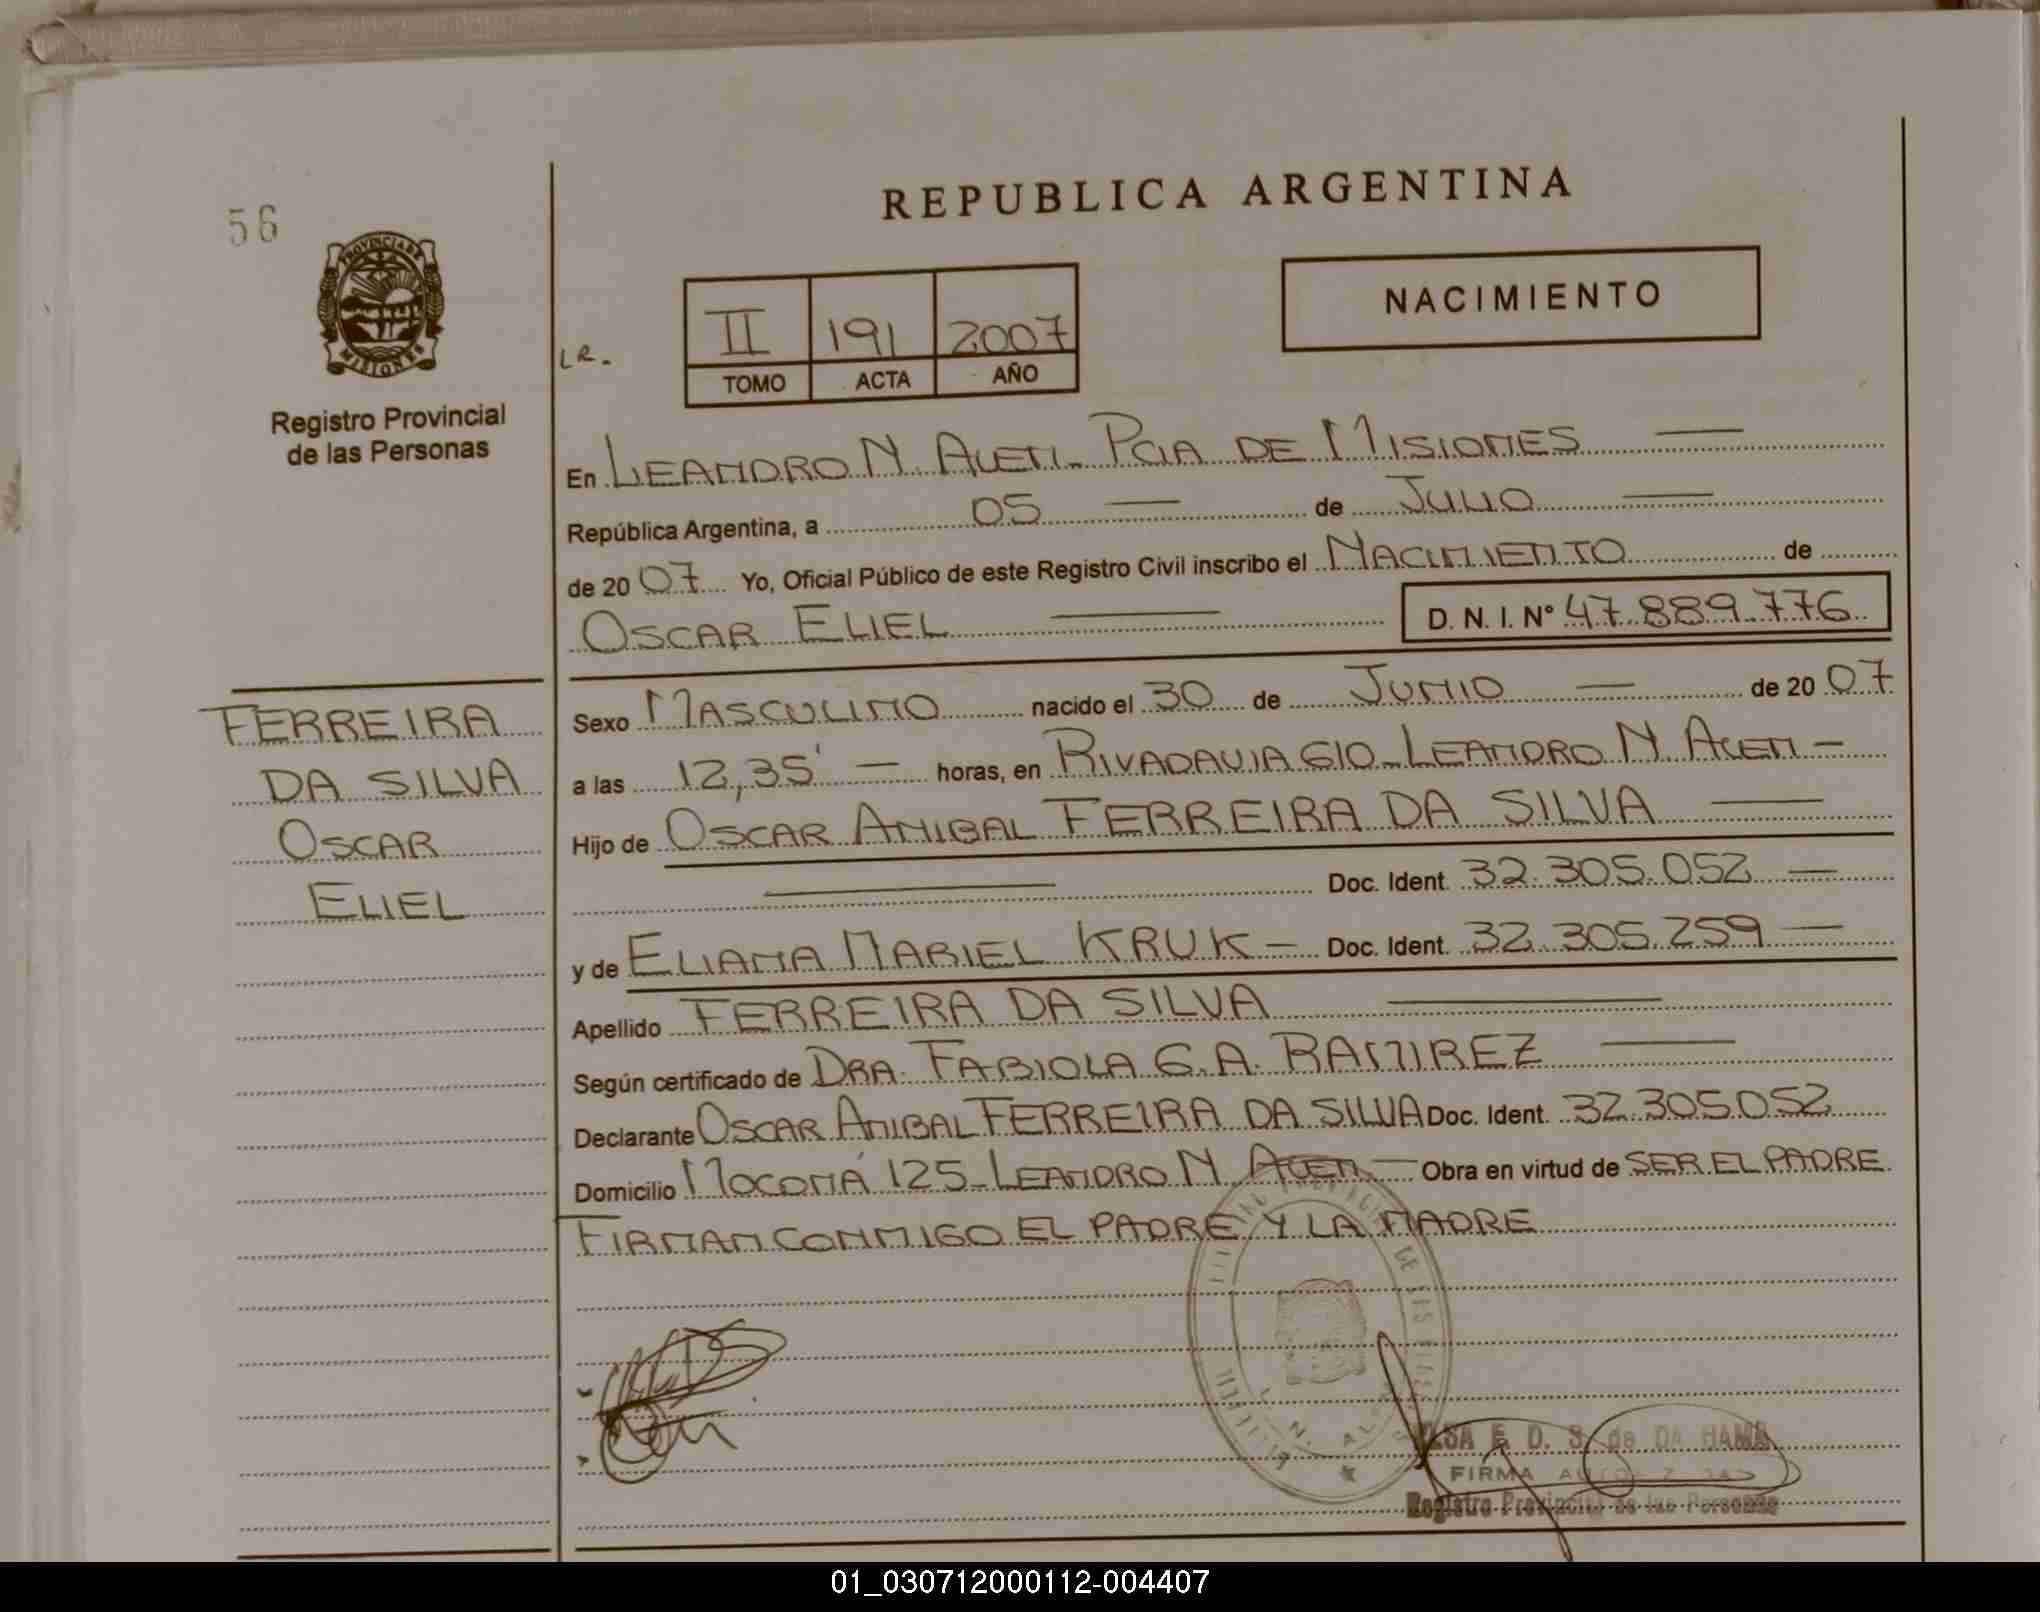 56
REPUBLICA ARGENTINA
PROVINCIA DE
MISIONES
NACIMIENTO
LR.
II 191 2007
TOMO ACTA AÑO
Registro Provincial
de las Personas
En LEANDRO N. ALEM - PCIA DE MISIONES
República Argentina, a 05 de JULIO
de 2007 Yo, Oficial Público de este Registro Civil inscribo el NACIMIENTO de
OSCAR ELIEL D. N. I. Nº 47.889.776
FERREIRA
DA SILVA
OSCAR
ELIEL
Sexo MASCULINO nacido el 30 de JUNIO de 2007
a las 12,35' horas, en RIVADAVIA 610 - LEANDRO N. ALEM -
Hijo de OSCAR ANIBAL FERREIRA DA SILVA
Doc. Ident. 32.305.052
y de ELIANA MARIEL KRUK - Doc. Ident. 32.305.259
Apellido FERREIRA DA SILVA
Según certificado de DRA. FABIOLA G.A. RAMIREZ
Declarante OSCAR ANIBAL FERREIRA DA SILVA Doc. Ident. 32.305.052
Domicilio MOCONÁ 125 - LEANDRO N. ALEM - Obra en virtud de SER EL PADRE
FIRMAN CONMIGO EL PADRE Y LA MADRE
E. D. S. de DA
FIRMA
Registro Provincial de las Personas
01_030712000112-004407